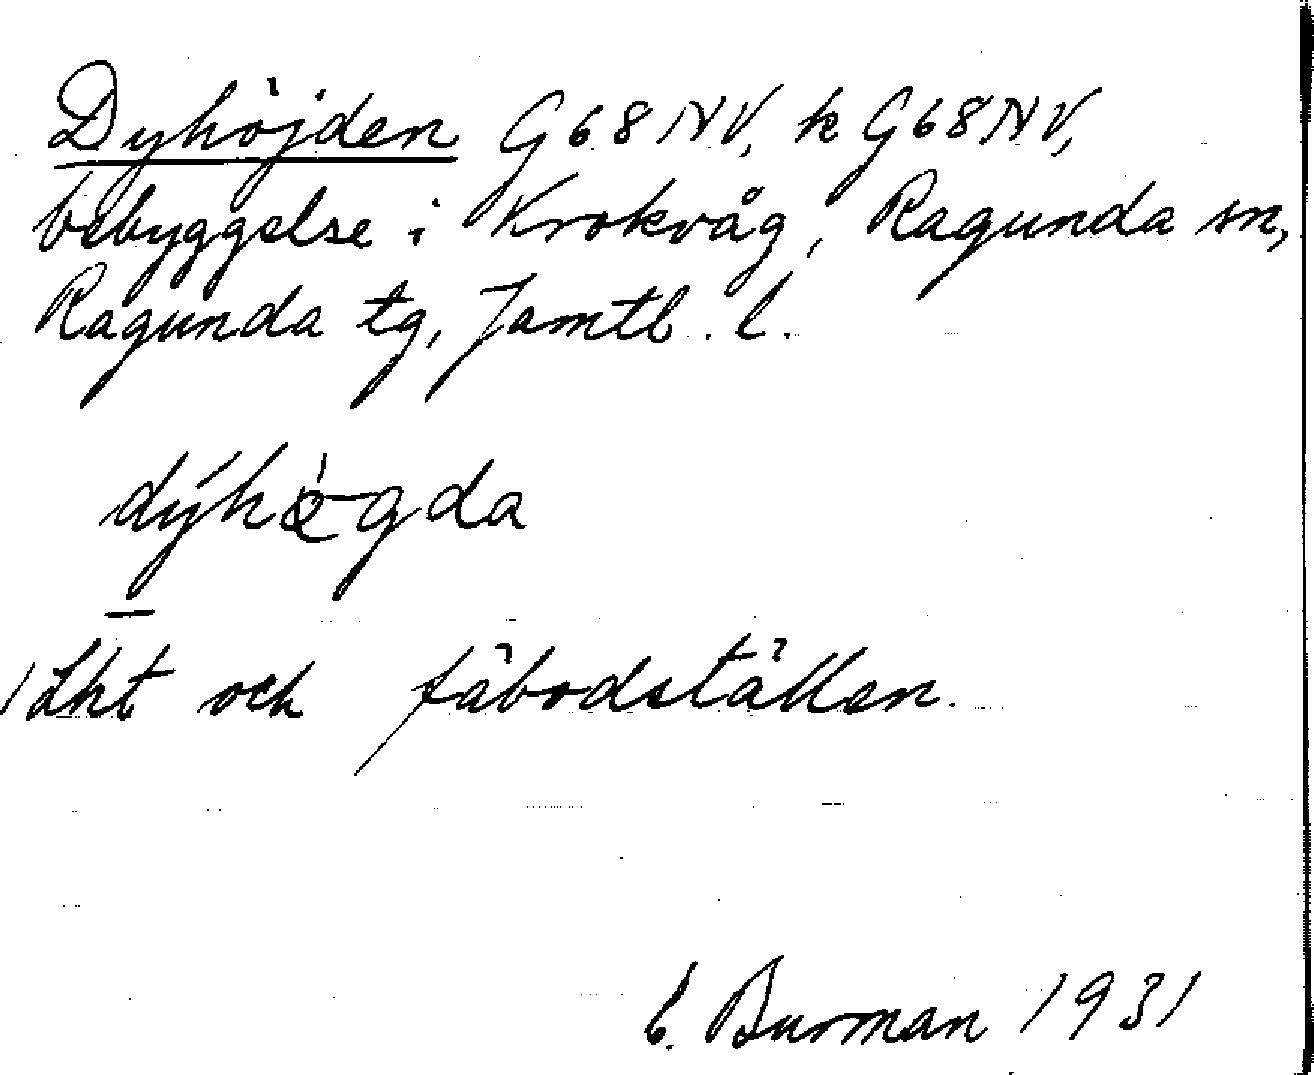 Dyhöjden G68NV, k G68NV,
bebyggelse i Krokvåg, Ragunda sn,
Ragunda tg, Jämtl. l.
dýhö̀gda
1 Lht och fäbodställen.
E. Burman 1931